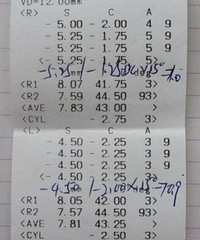 VD=12.00mm
<R> S C A
- 5.00 - 2.00 4 9
- 5.25 - 1.75 5 9
- 5.25 - 1.75 5 9
- 5.25 - 1.75 5 9
<- 5.25 - 1.75 5>
<R1 8.07 41.75 3>
<R2 7.59 44.50 93>
<AVE 7.83 43.00 >
<CYL - 2.75 3>
<L> S C A
- 4.50 - 2.25 3 9
- 4.50 - 2.25 3 9
- 4.50 - 2.25 3 9
<- 4.50 - 2.25 3>
<R1 8.05 42.00 3>
<R2 7.57 44.50 93>
<AVE 7.81 43.25 >
<CYL - 2.50 3>